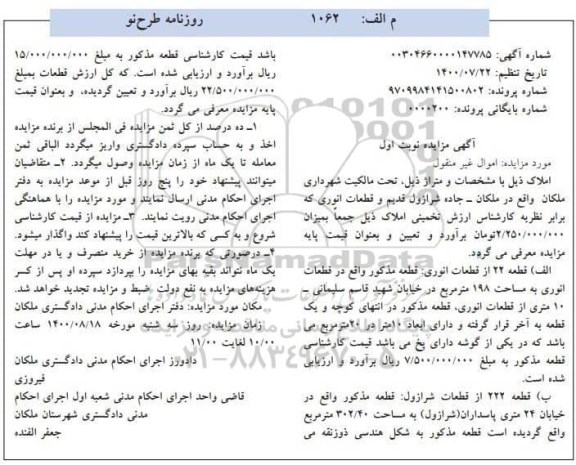 م الف: ۱۰۶۲ روزنامه طرح‌نو
شماره آگهی: ۰۰۳۰۴۶۶۰۰۰۰۱۴۷۷۸۵
تاریخ تنظیم: ۱۴۰۰/۰۷/۲۲
شماره پرونده: ۹۷۰۹۹۸۴۱۴۱۵۰۰۸۰۲
شماره بایگانی پرونده: ۰۰۰۰۲۰۰
آگهی مزایده نوبت اول
مورد مزایده: اموال غیر منقول
املاک ذیل با مشخصات و متراژ ذیل، تحت مالکیت شهرداری
ملکان واقع در ملکان – جاده شرازول قدیم و قطعات انوری که
برابر نظریه کارشناس ارزش تخمینی املاک ذیل جمعا بمیزان
۲/۲۵۰/۰۰۰/۰۰۰تومان برآورد و تعیین و بعنوان قیمت پایه
مزایده معرفی می گردد.
الف) قطعه ۲۲ از قطعات انوری: قطعه مذکور واقع در قطعات
انوری به مساحت ۱۹۸ مترمربع در خیابان شهید قاسم سلیمانی –
۱۰ متری از قطعات انوری، قطعه مذکور در انتهای کوچه و یک
قطعه به آخر قرار گرفته و دارای ابعاد ۱۰متر در ۲۰مترمربع می
باشد که در یکی از گوشه دارای پخ می باشد قیمت کارشناسی
قطعه مذکور به مبلغ ۷/۵۰۰/۰۰۰/۰۰۰ ریال برآورد و ارزیابی
شده است.
ب) قطعه ۲۲۲ از قطعات شرازول: قطعه مذکور واقع در
خیابان ۲۴ متری پاسداران(شرازول) به مساحت ۳۰۲/۴۰ مترمربع
واقع گردیده است قطعه مذکور به شکل هندسی ذوزنقه می
باشد قیمت کارشناسی قطعه مذکور به مبلغ ۱۵/۰۰۰/۰۰۰/۰۰۰
ریال برآورد و ارزیابی شده است. که کل ارزش قطعات بمبلغ
۲۲/۵۰۰/۰۰۰/۰۰۰ ریال برآورد و تعیین گردیده، و بعنوان قیمت
پایه مزایده معرفی می گردد.
۱ــ ده درصد از کل ثمن مزایده فی المجلس از برنده مزایده
اخذ و به حساب سپرده دادگستری واریز میگردد الباقی ثمن
معامله تا یک ماه از زمان مزایده وصول میگردد. ۲ــ متقاضیان
میتوانند پیشنهاد خود را پنج روز قبل از موعد مزایده به دفتر
اجرای احکام مدنی ارسال نمایند و مورد مزایده را با هماهنگی
اجرای احکام مدنی رویت نمایند. ۳ــ مزایده از قیمت کارشناسی
شروع و به کسی که بالاترین قیمت را پیشنهاد کند واگذار میشود.
۴ــ درصورتی که برنده مزایده از خرید منصرف و یا در مهلت
یک ماه نتواند بقیه بهای مزایده را بپردازد سپرده او پس از کسر
هزینه‌های مزایده به نفع دولت ضبط و مزایده تجدید خواهد شد.
مکان مورد مزایده: دفتر اجرای احکام مدنی دادگستری ملکان
زمان مزایده: روز سه شنبه مورخه ۱۴۰۰/۰۸/۱۸ ساعت
۱۰/۰۰ لغایت ۱۱/۰۰
دادورز اجرای احکام مدنی دادگستری ملکان
فیروزی
قاضی واحد اجرای احکام مدنی شعبه اول اجرای احکام
مدنی دادگستری شهرستان ملکان
جعفر الفنده
ParsNamadData
۰۲۱-۸۸۳۴۹۶۷۰-۵